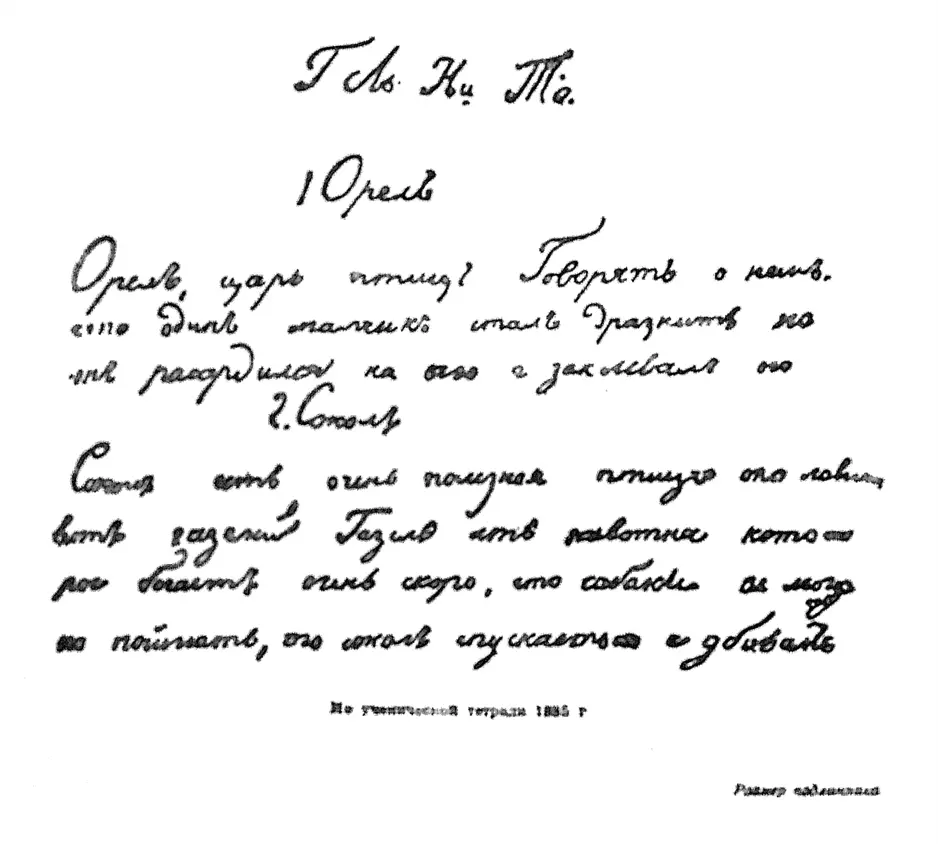 Г Ль. Ни. То.
1 Орелъ
Орелъ, царь птицъ Говорятъ о немъ.
что одинъ мальчикъ сталъ дразнить но
онъ расердился на его и заклевалъ его
2. Соколъ
Соколъ есть очень полезная птица оно
газелий Газель есть животна кото-
рое бѣгаетъ очень скоро, что собаки не могу
ее поймать, его соколъ спускается и убиваетъ
Из ученической тетради 1835 г
Размер подлинника